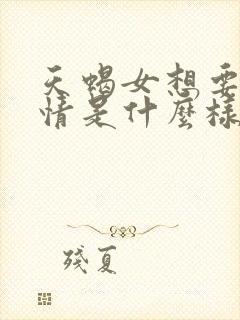 天蝎女想要
情是什麼樣
殘夏